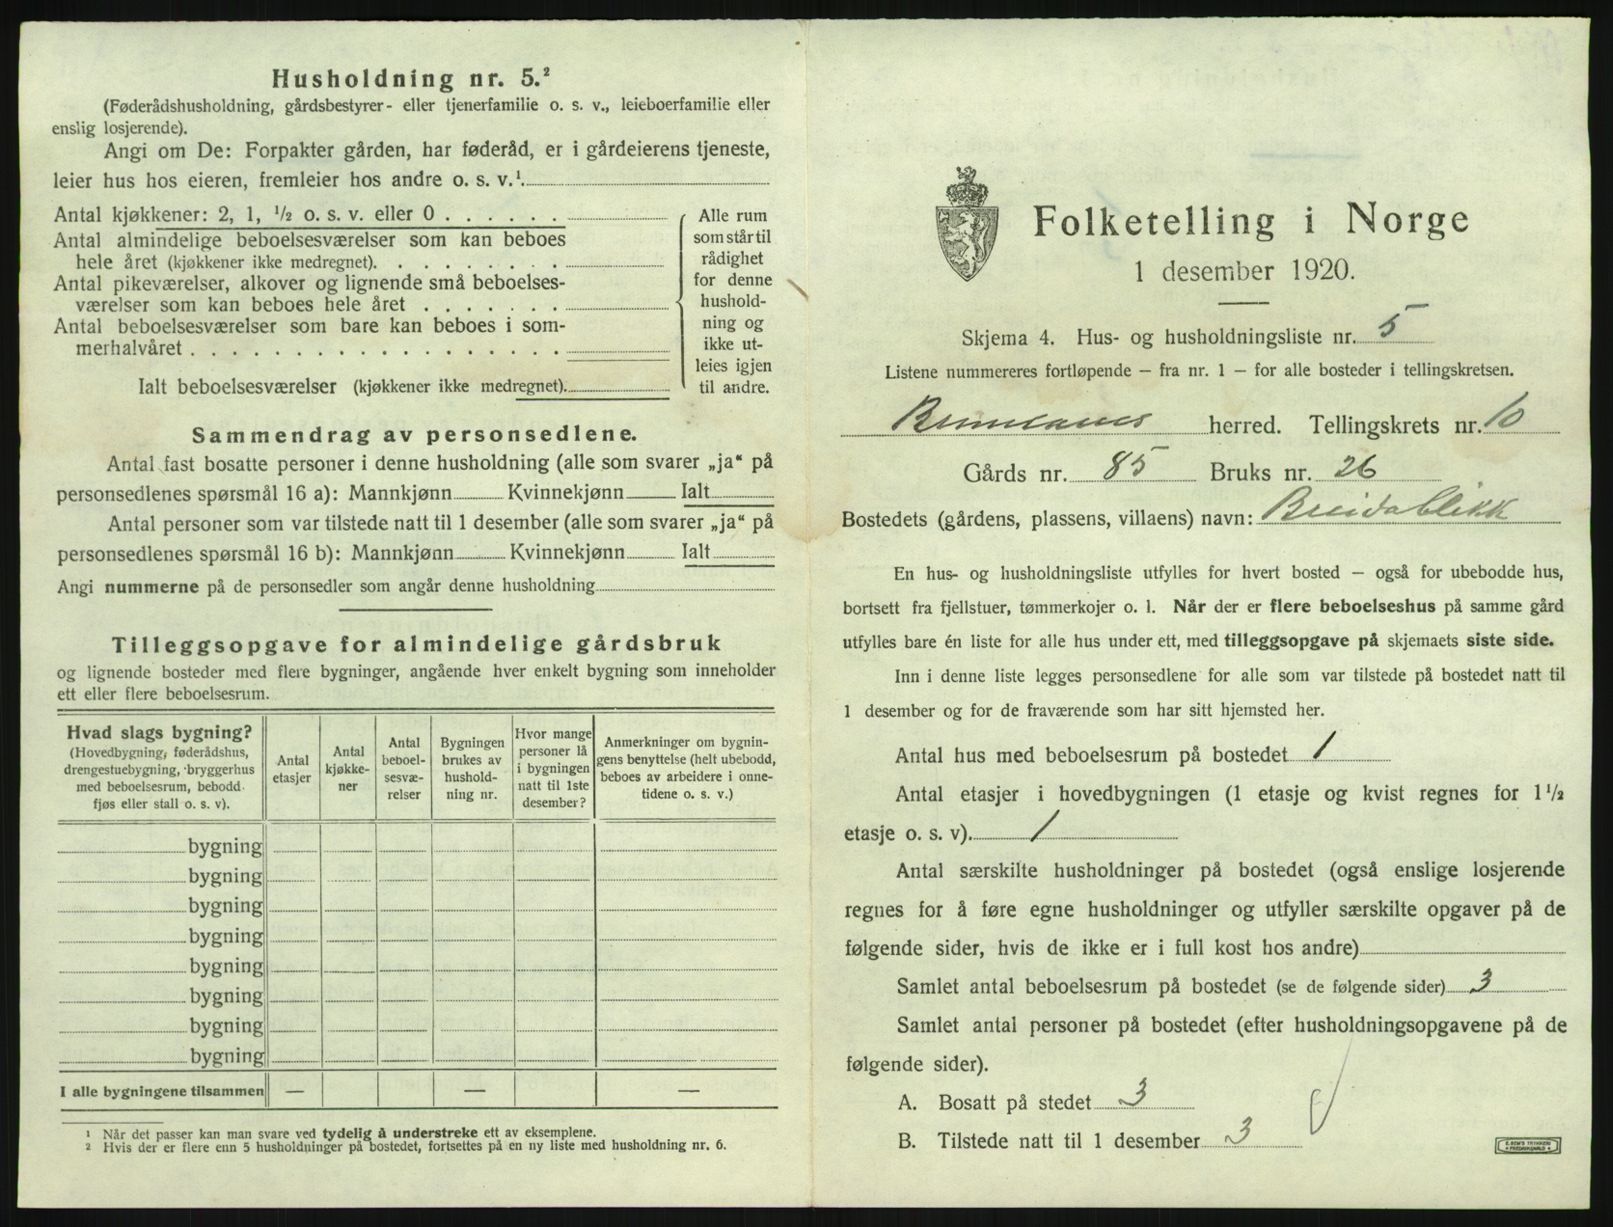 Husholdning nr. 5.²
(Føderådshusholdning, gårdsbestyrer- eller tjenerfamilie o. s. v., leieboerfamilie eller
enslig losjerende).
Angi om De: Forpakter gården, har føderåd, er i gårdeierens tjeneste,
leier hus hos eieren, fremleier hos andre o. s. v.¹.
Antal kjøkkener: 2, 1, ½ o. s. v. eller 0 . . . . . .
Antal almindelige beboelsesværelser som kan beboes
hele året (kjøkkener ikke medregnet). . . . . . . . .
Antal pikeværelser, alkover og lignende små beboelses-
værelser som kan beboes hele året . . . . . . .
Antal beboelsesværelser som bare kan beboes i som-
merhalvåret . . . . . . . . . . . . . . . . . .
Ialt beboelsesværelser (kjøkkener ikke medregnet).
Alle rum
som står til
rådighet
for denne
hushold-
ning og
ikke ut-
leies igjen
til andre.
Sammendrag av personsedlene.
Antal fast bosatte personer i denne husholdning (alle som svarer „ja“ på
personsedlenes spørsmål 16 a): Mannkjønn Kvinnekjønn Ialt
Antal personer som var tilstede natt til 1 desember (alle som svarer „ja“ på
personsedlenes spørsmål 16 b): Mannkjønn Kvinnekjønn Ialt
Angi nummerne på de personsedler som angår denne husholdning
Tilleggsopgave for almindelige gårdsbruk
og lignende bosteder med flere bygninger, angående hver enkelt bygning som inneholder
ett eller flere beboelsesrum.
Hvad slags bygning?
(Hovedbygning, føderådshus,
drengestuebygning, bryggerhus
med beboelsesrum, bebodd
fjøs eller stall o. s. v).
Antal
etasjer
Antal
kjøkke-
ner
Antal
beboel-
sesvæ-
relser
Bygningen
brukes av
hushold-
ning nr.
Hvor mange
personer lå
i bygningen
natt til 1ste
desember?
Anmerkninger om bygnin-
gens benyttelse (helt ubebodd,
beboes av arbeidere i onne-
tidene o. s. v.)
bygning
bygning
bygning
bygning
bygning
bygning
bygning
bygning
I alle bygningene tilsammen — — —
¹ Når det passer kan man svare ved tydelig å understreke ett av eksemplene.
² Hvis der er flere enn 5 husholdninger på bostedet, fortsettes på en ny liste med husholdning nr. 6.
Folketelling i Norge
1 desember 1920.
Skjema 4. Hus- og husholdningsliste nr. 5
Listene nummereres fortløpende — fra nr. 1 — for alle bosteder i tellingskretsen.
Brunlanes herred. Tellingskrets nr. 10
Gårds nr. 85 Bruks nr. 26
Bostedets (gårdens, plassens, villaens) navn: Breidablikk
En hus- og husholdningsliste utfylles for hvert bosted — også for ubebodde hus,
bortsett fra fjellstuer, tømmerkojer o. l. Når der er flere beboelseshus på samme gård
utfylles bare én liste for alle hus under ett, med tilleggsopgave på skjemaets siste side.
Inn i denne liste legges personsedlene for alle som var tilstede på bostedet natt til
1 desember og for de fraværende som har sitt hjemsted her.
Antal hus med beboelsesrum på bostedet 1
Antal etasjer i hovedbygningen (1 etasje og kvist regnes for 1½
etasje o. s. v). 1
Antal særskilte husholdninger på bostedet (også enslige losjerende
regnes for å føre egne husholdninger og utfyller særskilte opgaver på de
følgende sider, hvis de ikke er i full kost hos andre)
Samlet antal beboelsesrum på bostedet (se de følgende sider) 3
Samlet antal personer på bostedet (efter husholdningsopgavene på de
følgende sider).
A. Bosatt på stedet 3
B. Tilstede natt til 1 desember 3